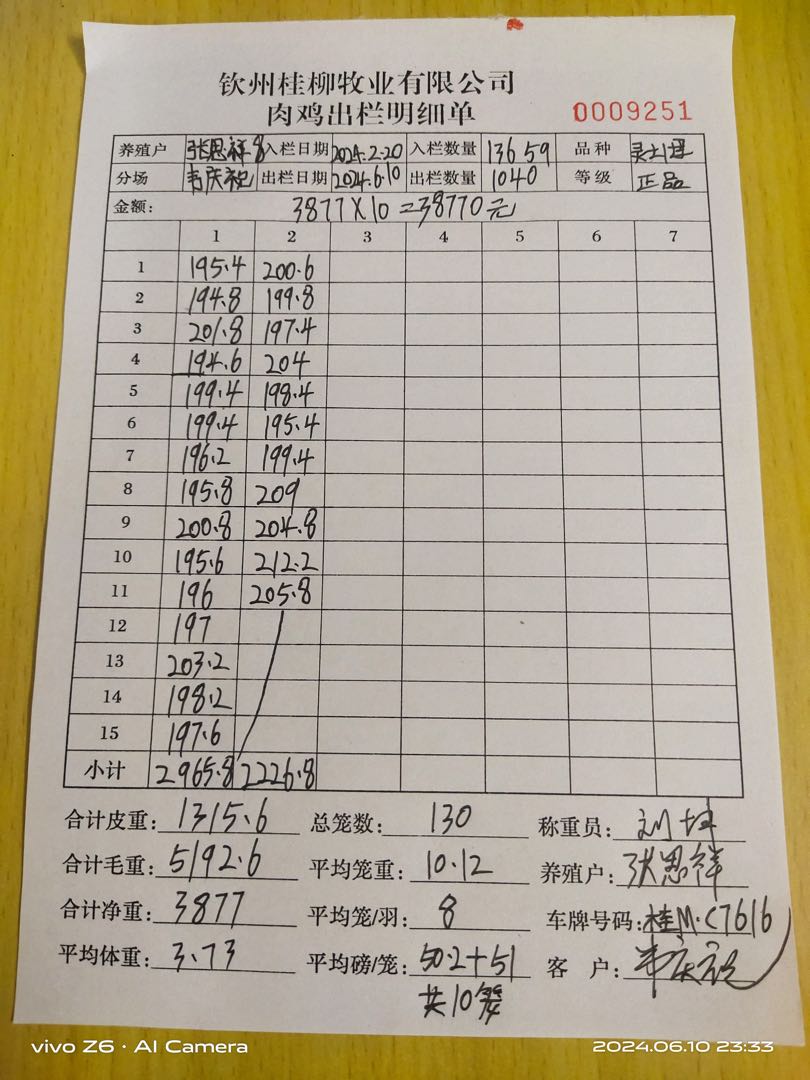 钦州桂柳牧业有限公司
肉鸡出栏明细单 0009251
养殖户 张恩祥8 入栏日期 2024.2.20 入栏数量 13659 品种
分场 韦庆 出栏日期 2024.6.10 出栏数量 1040 等级 正品
金额: 3877X10=38770元
1 2 3 4 5 6 7
1 195.4 200.6
2 194.8 199.8
3 201.8 197.4
4 194.6 204
5 199.4 198.4
6 199.4 195.4
7 196.2 199.4
8 195.8 209
9 200.8 204.8
10 195.6 212.2
11 196 205.8
12 197
13 203.2
14 198.2
15 197.6
小计 2965.8 2226.8
合计皮重: 1315.6 总笼数: 130 称重员: 刘
合计毛重: 5192.6 平均笼重: 10.12 养殖户: 张恩祥
合计净重: 3877 平均笼/羽: 8 车牌号码: 桂M·C7616
平均体重: 3.73 平均磅/笼: 50.2+51 客 户:
共10
vivo Z6 · AI Camera 2024.06.10 23:33